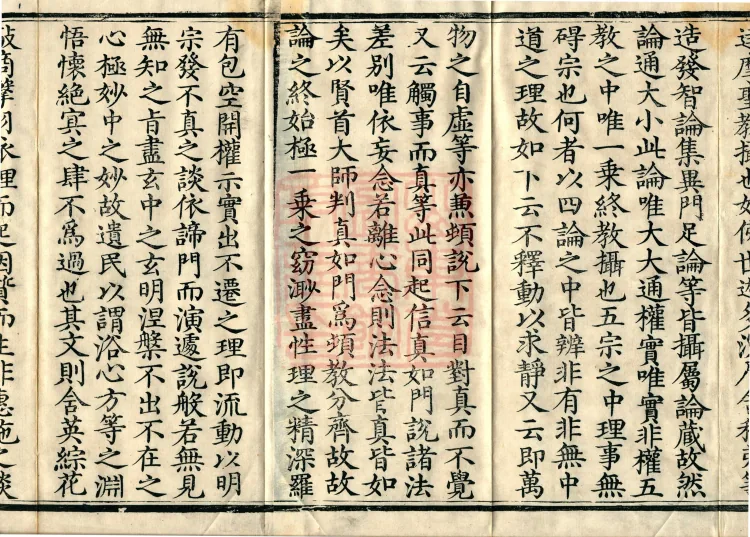 造發智論集異門足論等皆攝屬論蔵故然
論通大小此論唯大大通權實唯實非權五
教之中唯一乗終教攝也五宗之中理事無
碍宗也何者以四論之中皆辨非有非無中
道之理故如下云不釋動以求靜又云即萬
物之自虛等亦兼頓說下云目對真而不覺
又云觸事而真等此同起信真如門說諸法
差別唯依妄念若離心念則法法皆真皆如
矣以賢首大師判真如門爲頓教分齊故故
論之終始極一乗之窈渺盡性理之精深羅
有包空開權示實出不遷之理即流動以明
宗發不真之談依諦門而演遽說般若無見
無知之旨盡玄中之玄明涅槃不出不在之
心極妙中之妙故遺民以謂浴心方等之淵
悟懷絕冥之肆不爲過也其文則含英綜花